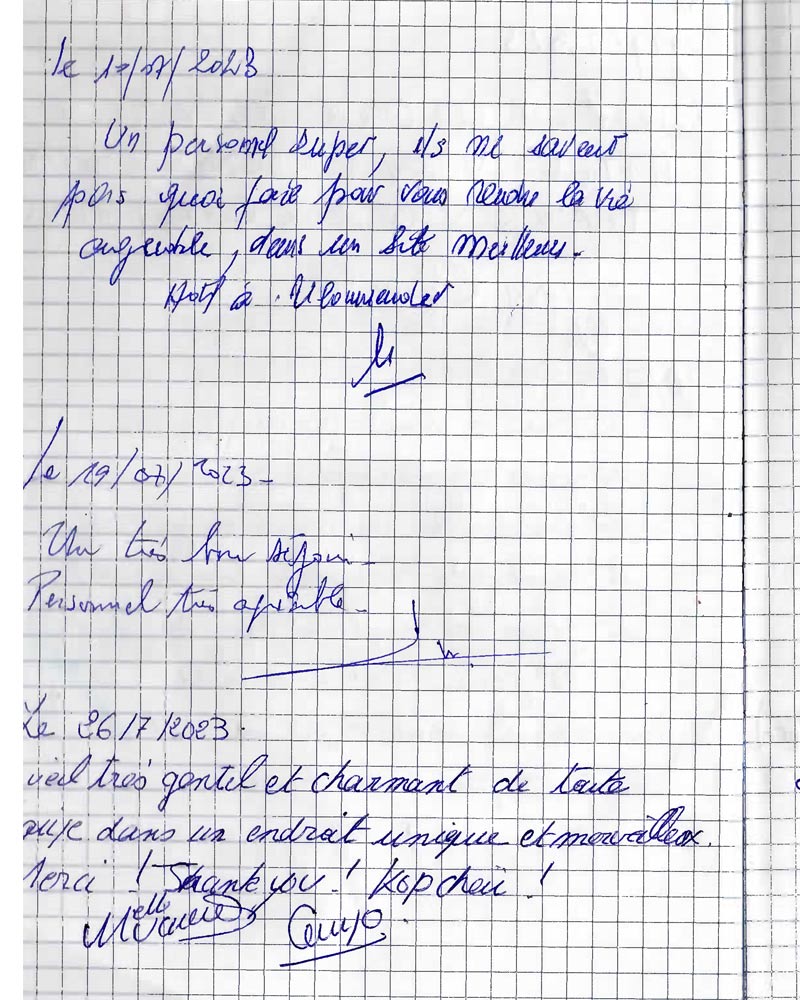 le 17/07/2023
Un personnel super, ils ne savent
pas quoi faire pour vous rendre la vie
agréable, dans un site merveilleux.
à Recommander
le 19/07/2023-
Un très bon séjour-
Personnel très agréable-
Le 26/7/2023.
ueil très gentil et charmant de toute
uipe dans un endroit unique et merveilleux.
Merci ! Thank you ! Kop chai !